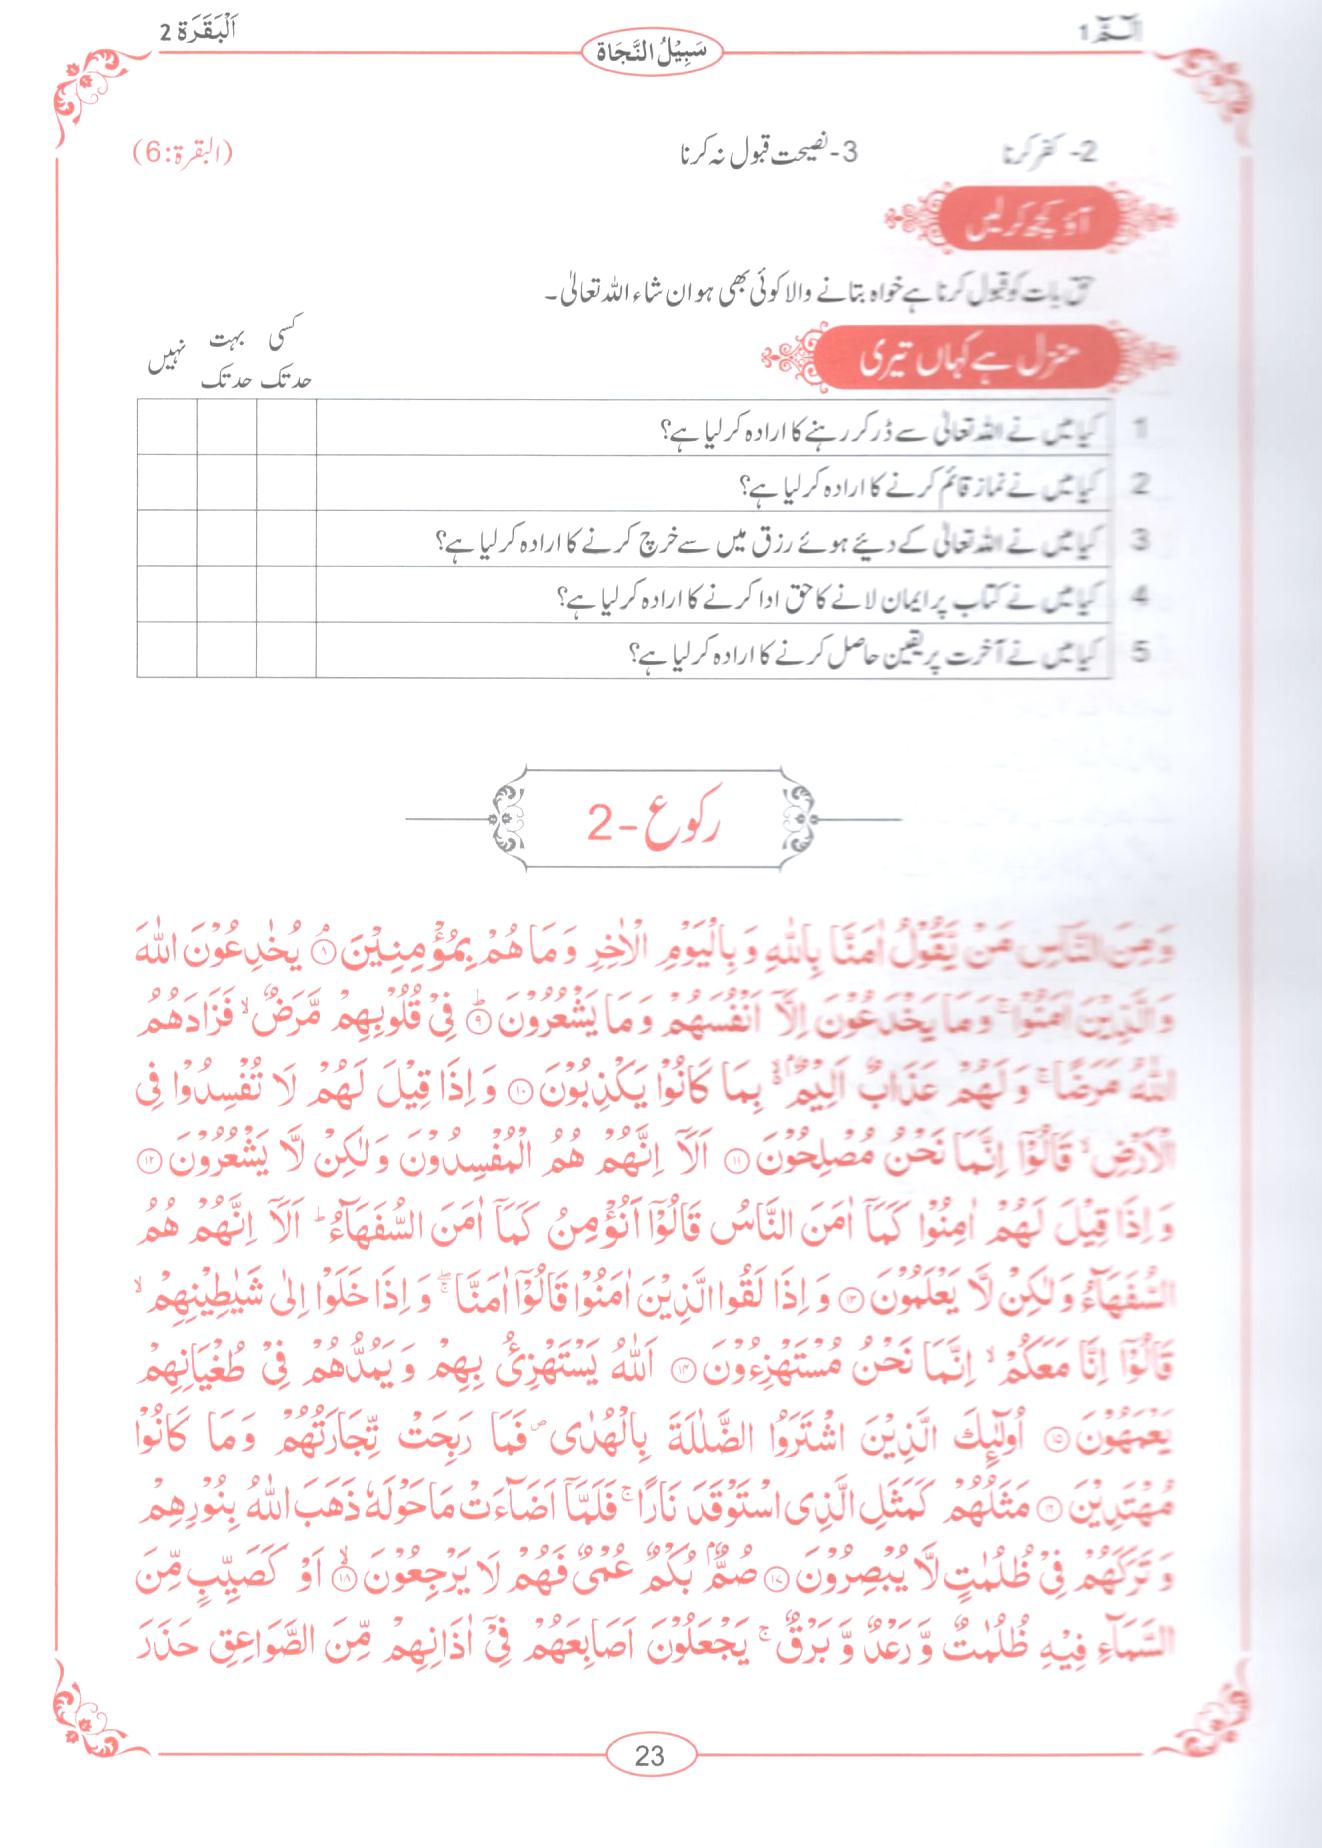 الٓمّٓ 1
سَبِيْلُ النَّجَاة
اَلْبَقَرَة 2
2- کفر کرنا 3- نصیحت قبول نہ کرنا (البقرة:6)
آؤ کچھ کرلیں
حق بات کو قبول کرنا ہے خواہ بتانے والا کوئی بھی ہو ان شاء اللہ تعالیٰ۔
منزل ہے کہاں تیری
کسی حد تک بہت حد تک نہیں
1 کیا میں نے اللہ تعالیٰ سے ڈر کر رہنے کا ارادہ کر لیا ہے؟
2 کیا میں نے نماز قائم کرنے کا ارادہ کر لیا ہے؟
3 کیا میں نے اللہ تعالیٰ کے دیئے ہوئے رزق میں سے خرچ کرنے کا ارادہ کر لیا ہے؟
4 کیا میں نے کتاب پر ایمان لانے کا حق ادا کرنے کا ارادہ کر لیا ہے؟
5 کیا میں نے آخرت پر یقین حاصل کرنے کا ارادہ کر لیا ہے؟
رکوع - 2
وَ مِنَ النَّاسِ مَنْ يَّقُوْلُ اٰمَنَّا بِاللّٰهِ وَ بِالْيَوْمِ الْاٰخِرِ وَ مَا هُمْ بِمُؤْمِنِيْنَ ۘ ۝۸ يُخٰدِعُوْنَ اللّٰهَ
وَ الَّذِيْنَ اٰمَنُوْا ۚ وَ مَا يَخْدَعُوْنَ اِلَّاۤ اَنْفُسَهُمْ وَ مَا يَشْعُرُوْنَ ؕ ۝۹ فِيْ قُلُوْبِهِمْ مَّرَضٌ ۙ فَزَادَهُمُ
اللّٰهُ مَرَضًا ۚ وَ لَهُمْ عَذَابٌ اَلِيْمٌۢ ۙ بِمَا كَانُوْا يَكْذِبُوْنَ ۝۱۰ وَ اِذَا قِيْلَ لَهُمْ لَا تُفْسِدُوْا فِي
الْاَرْضِ ۙ قَالُوْۤا اِنَّمَا نَحْنُ مُصْلِحُوْنَ ۝۱۱ اَلَاۤ اِنَّهُمْ هُمُ الْمُفْسِدُوْنَ وَ لٰكِنْ لَّا يَشْعُرُوْنَ ۝۱۲
وَ اِذَا قِيْلَ لَهُمْ اٰمِنُوْا كَمَاۤ اٰمَنَ النَّاسُ قَالُوْۤا اَنُؤْمِنُ كَمَاۤ اٰمَنَ السُّفَهَآءُ ؕ اَلَاۤ اِنَّهُمْ هُمُ
السُّفَهَآءُ وَ لٰكِنْ لَّا يَعْلَمُوْنَ ۝۱۳ وَ اِذَا لَقُوا الَّذِيْنَ اٰمَنُوْا قَالُوْۤا اٰمَنَّا ۖۚ وَ اِذَا خَلَوْا اِلٰى شَيٰطِيْنِهِمْ ۙ
قَالُوْۤا اِنَّا مَعَكُمْ ۙ اِنَّمَا نَحْنُ مُسْتَهْزِءُوْنَ ۝۱۴ اَللّٰهُ يَسْتَهْزِئُ بِهِمْ وَ يَمُدُّهُمْ فِيْ طُغْيَانِهِمْ
يَعْمَهُوْنَ ۝۱۵ اُولٰٓئِكَ الَّذِيْنَ اشْتَرَوُا الضَّلٰلَةَ بِالْهُدٰى ۪ فَمَا رَبِحَتْ تِّجَارَتُهُمْ وَ مَا كَانُوْا
مُهْتَدِيْنَ ۝۱۶ مَثَلُهُمْ كَمَثَلِ الَّذِي اسْتَوْقَدَ نَارًا ۚ فَلَمَّاۤ اَضَآءَتْ مَا حَوْلَهٗ ذَهَبَ اللّٰهُ بِنُوْرِهِمْ
وَ تَرَكَهُمْ فِيْ ظُلُمٰتٍ لَّا يُبْصِرُوْنَ ۝۱۷ صُمٌّۢ بُكْمٌ عُمْيٌ فَهُمْ لَا يَرْجِعُوْنَ ۙ ۝۱۸ اَوْ كَصَيِّبٍ مِّنَ
السَّمَآءِ فِيْهِ ظُلُمٰتٌ وَّ رَعْدٌ وَّ بَرْقٌ ۚ يَجْعَلُوْنَ اَصَابِعَهُمْ فِيْۤ اٰذَانِهِمْ مِّنَ الصَّوَاعِقِ حَذَرَ
23